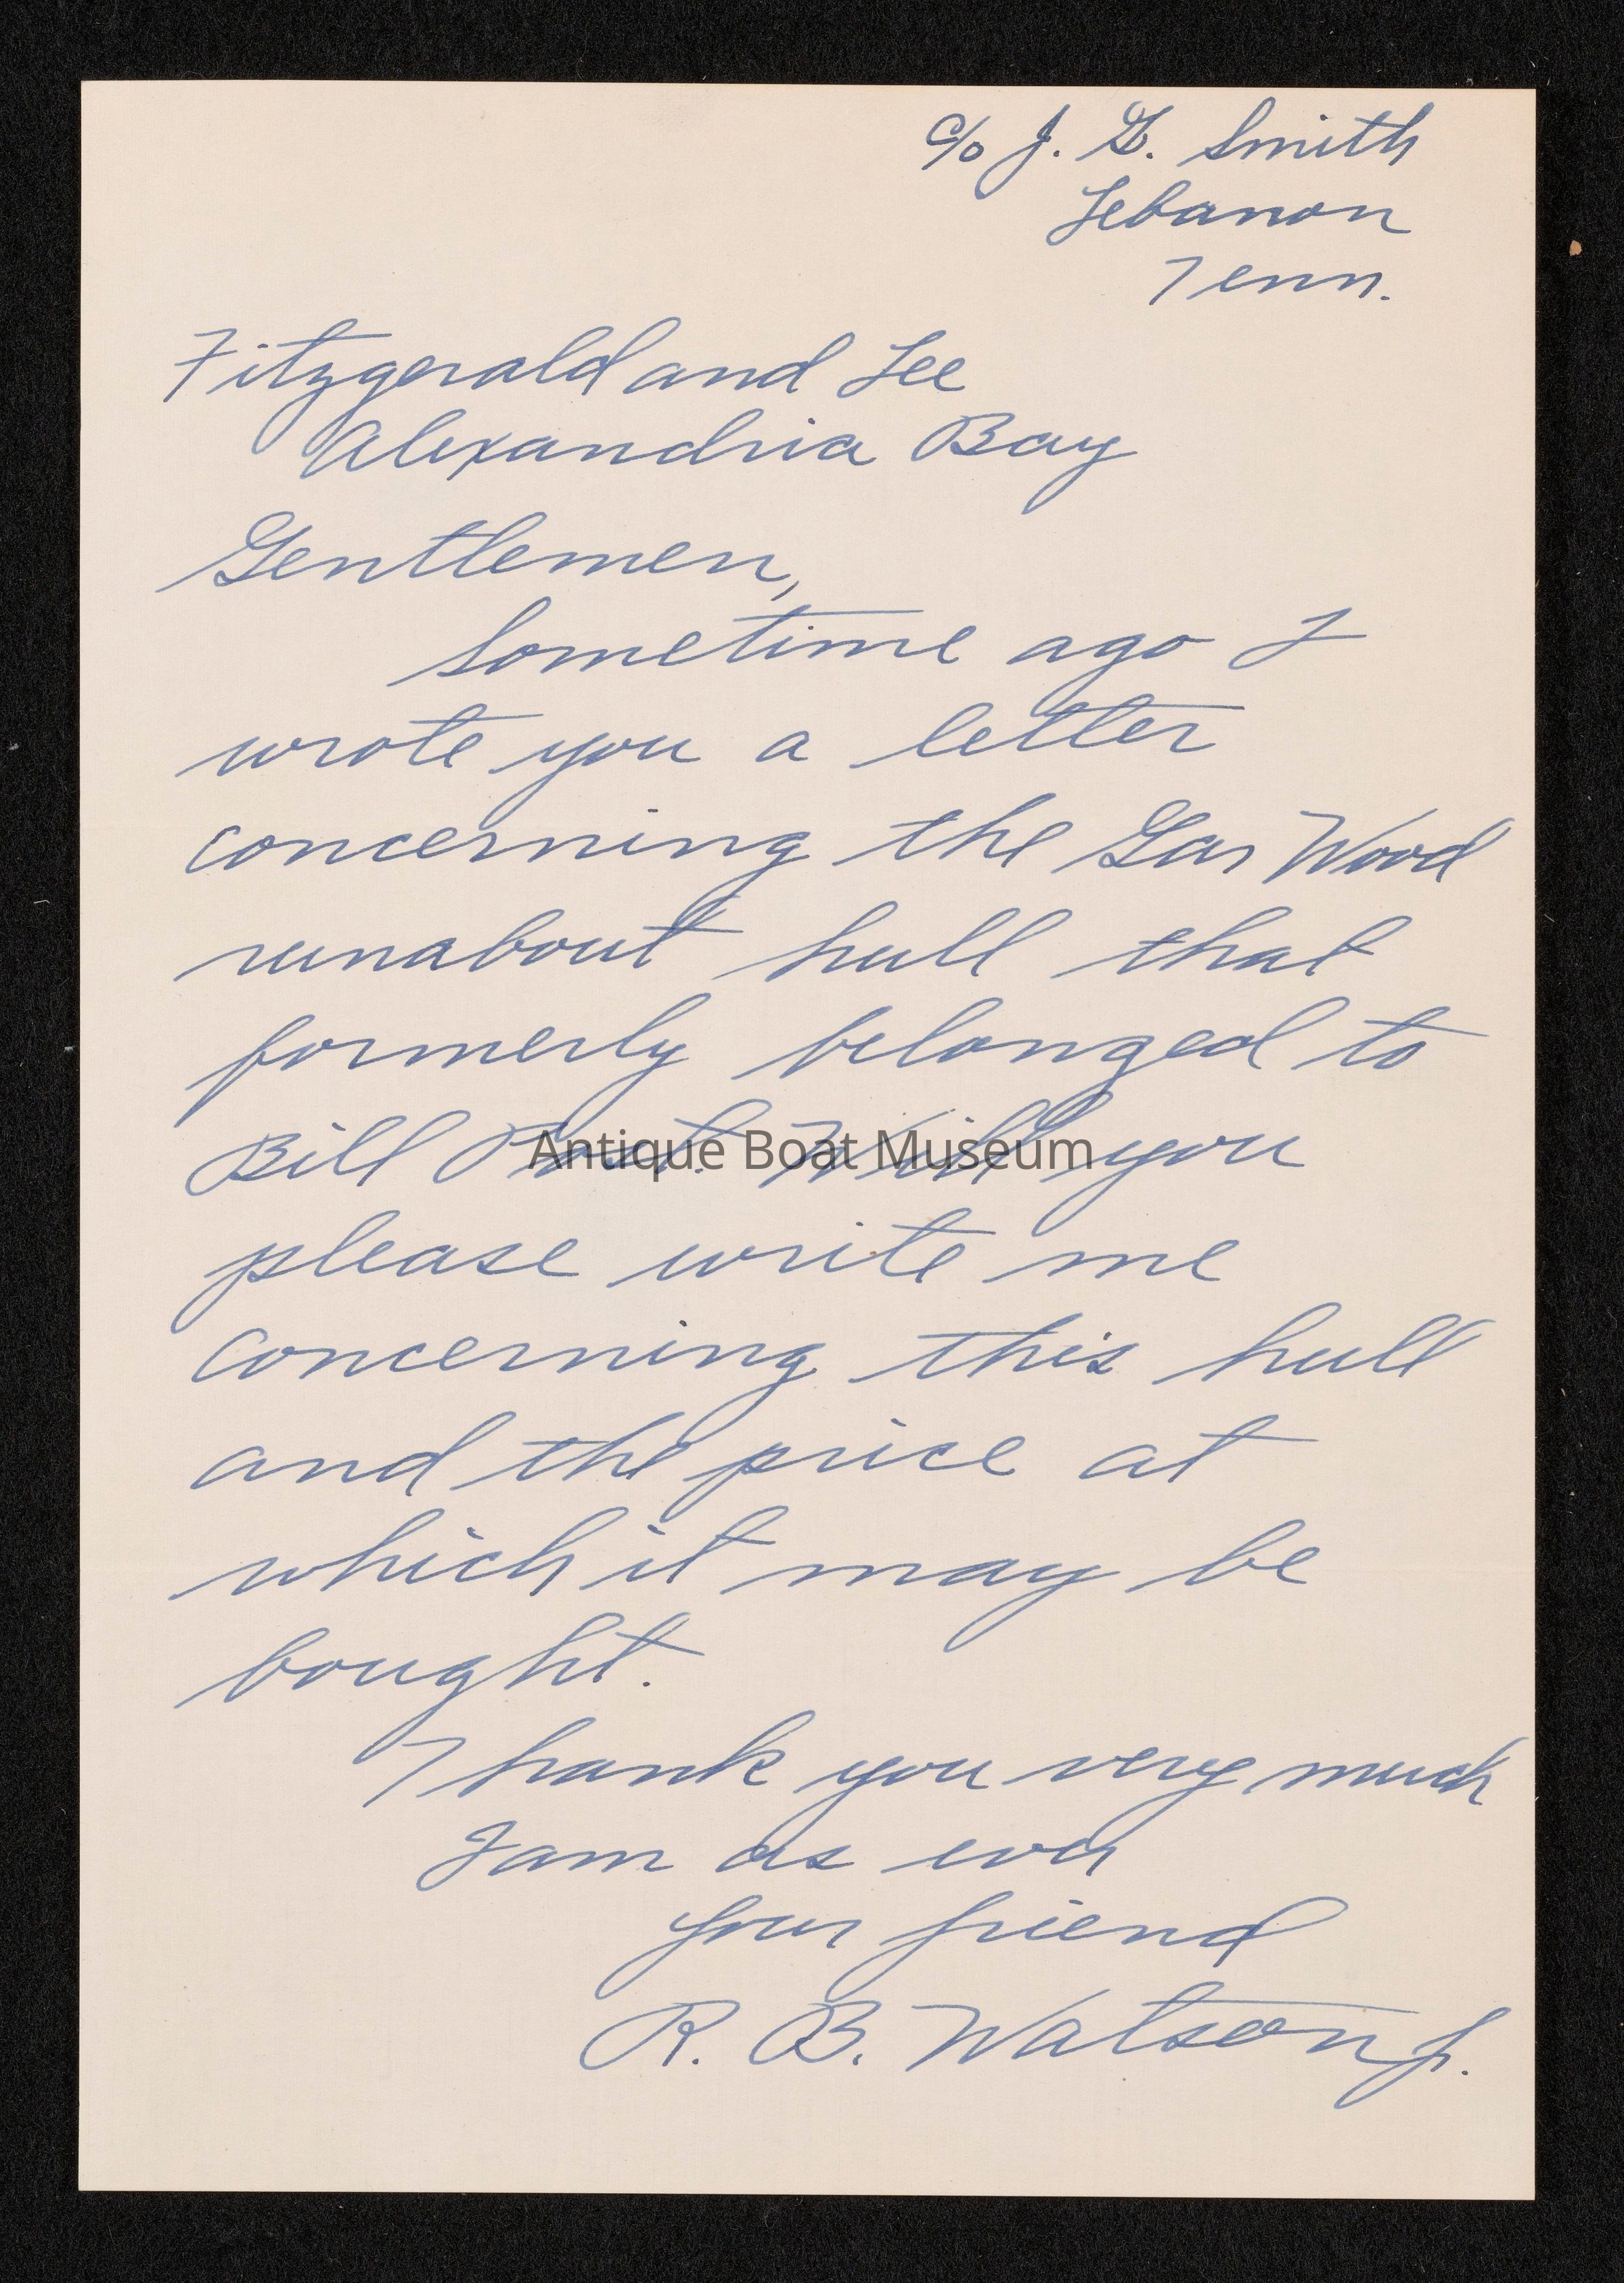 c/o J. G. Smith
Lebanon
Tenn.
Fitzgerald and Lee
Alexandria Bay
Gentlemen,
Sometime ago I
wrote you a letter
concerning the Gar Wood
runabout hull that
formerly belonged to
Bill Will you
Antique Boat Museum
please write me
concerning this hull
and the price at
which it may be
bought.
Thank you very much
I am as ever
Your friend
R. B. Watson Jr.